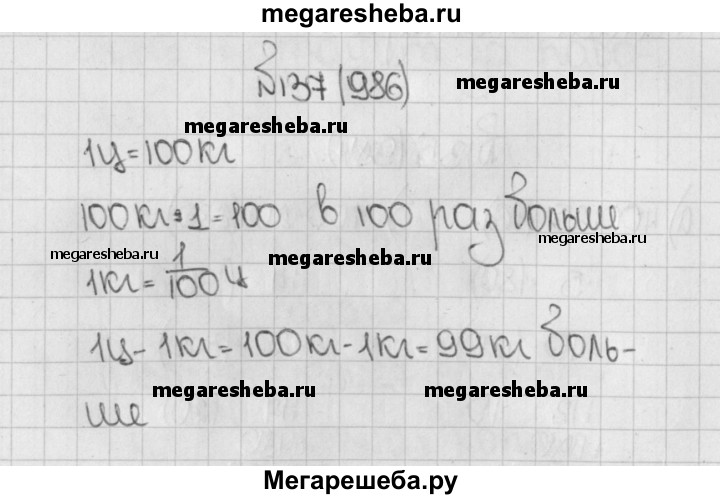 megaresheba.ru
№137 (986)
megaresheba.ru
megaresheba.ru
1ц=100кг
100кг:1=100 в 100 раз больше
megaresheba.ru
megaresheba.ru
megaresheba.ru
1кг=1/100ц
1ц-1кг=100кг-1кг=99кг боль-
megaresheba.ru
megaresheba.ru
ше
Мегарешеба.ру